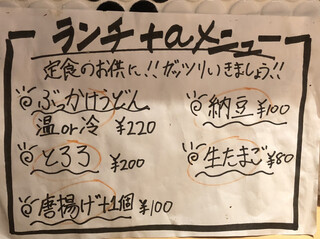 ランチ+αメニュー
定食のお供に!!ガッツリいきましょう!!
ぶっかけうどん
温or冷 ¥220
とろろ ¥200
唐揚げ+1個 ¥100
納豆 ¥100
生たまご ¥80